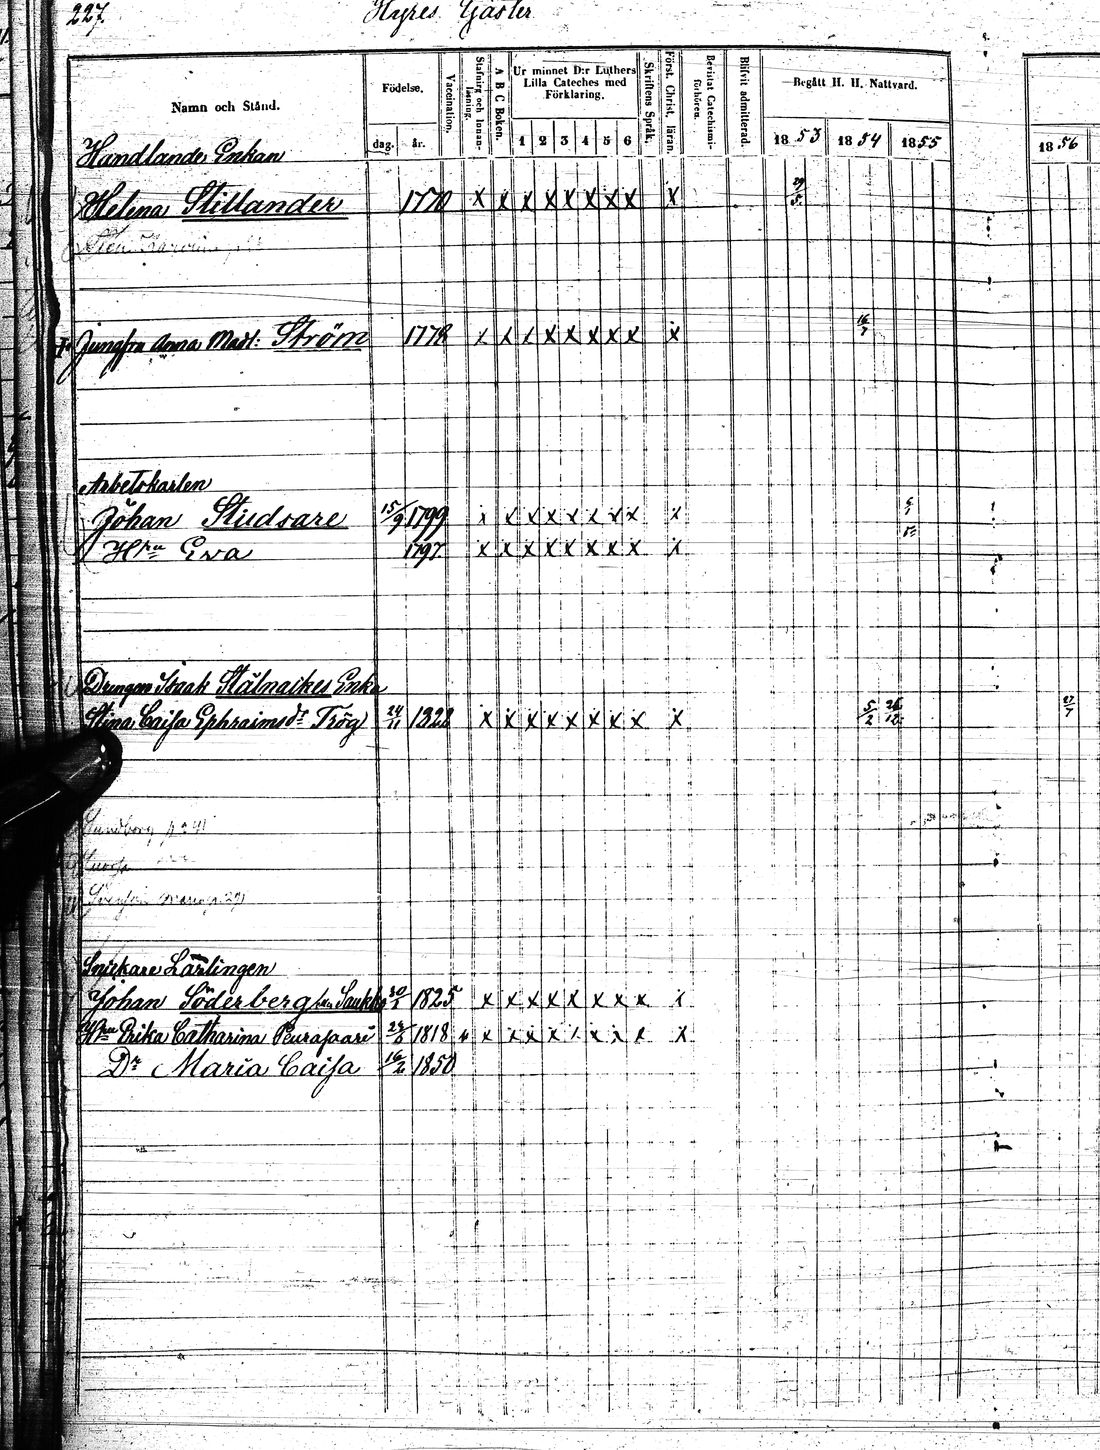 227. Hyres Gäster
Namn och Stånd. Födelse. Vaccination. Stafning och Innanläsning. A B C Boken. Ur minnet D:r Luthers Lilla Cateches med Förklaring. Skriftens Språk. Först. Christ. läran. Bevistat Catechismi-förhören. Blifvit admitterad. Begått H. H. Nattvard.
dag. år. 1 2 3 4 5 6 1853 1854 1855 1856
Handlande Enkan
Helena Stillander 1770 x x x x x x x x x 29/5
Jungfru Anna Madl: Ström 1778 x x x x x x x x x 16/7
Arbetskarlen
Johan Studsare 15/9 1799 x x x x x x x x x
Hru Eva 1797 x x x x x x x x x
Drengen Isaak Stålnackes Enka
Stina Caisa Ephraimsdr Trög 24/11 1828 x x x x x x x x x 5/2 26/12 27/7
Lundborg
Snickare Lärlingen
Johan Söderberg Saukko 30/1 1825 x x x x x x x x x
Hru Erika Catharina Peurasaari 1818 x x x x x x x x x
Dr Maria Caisa 16/2 1850